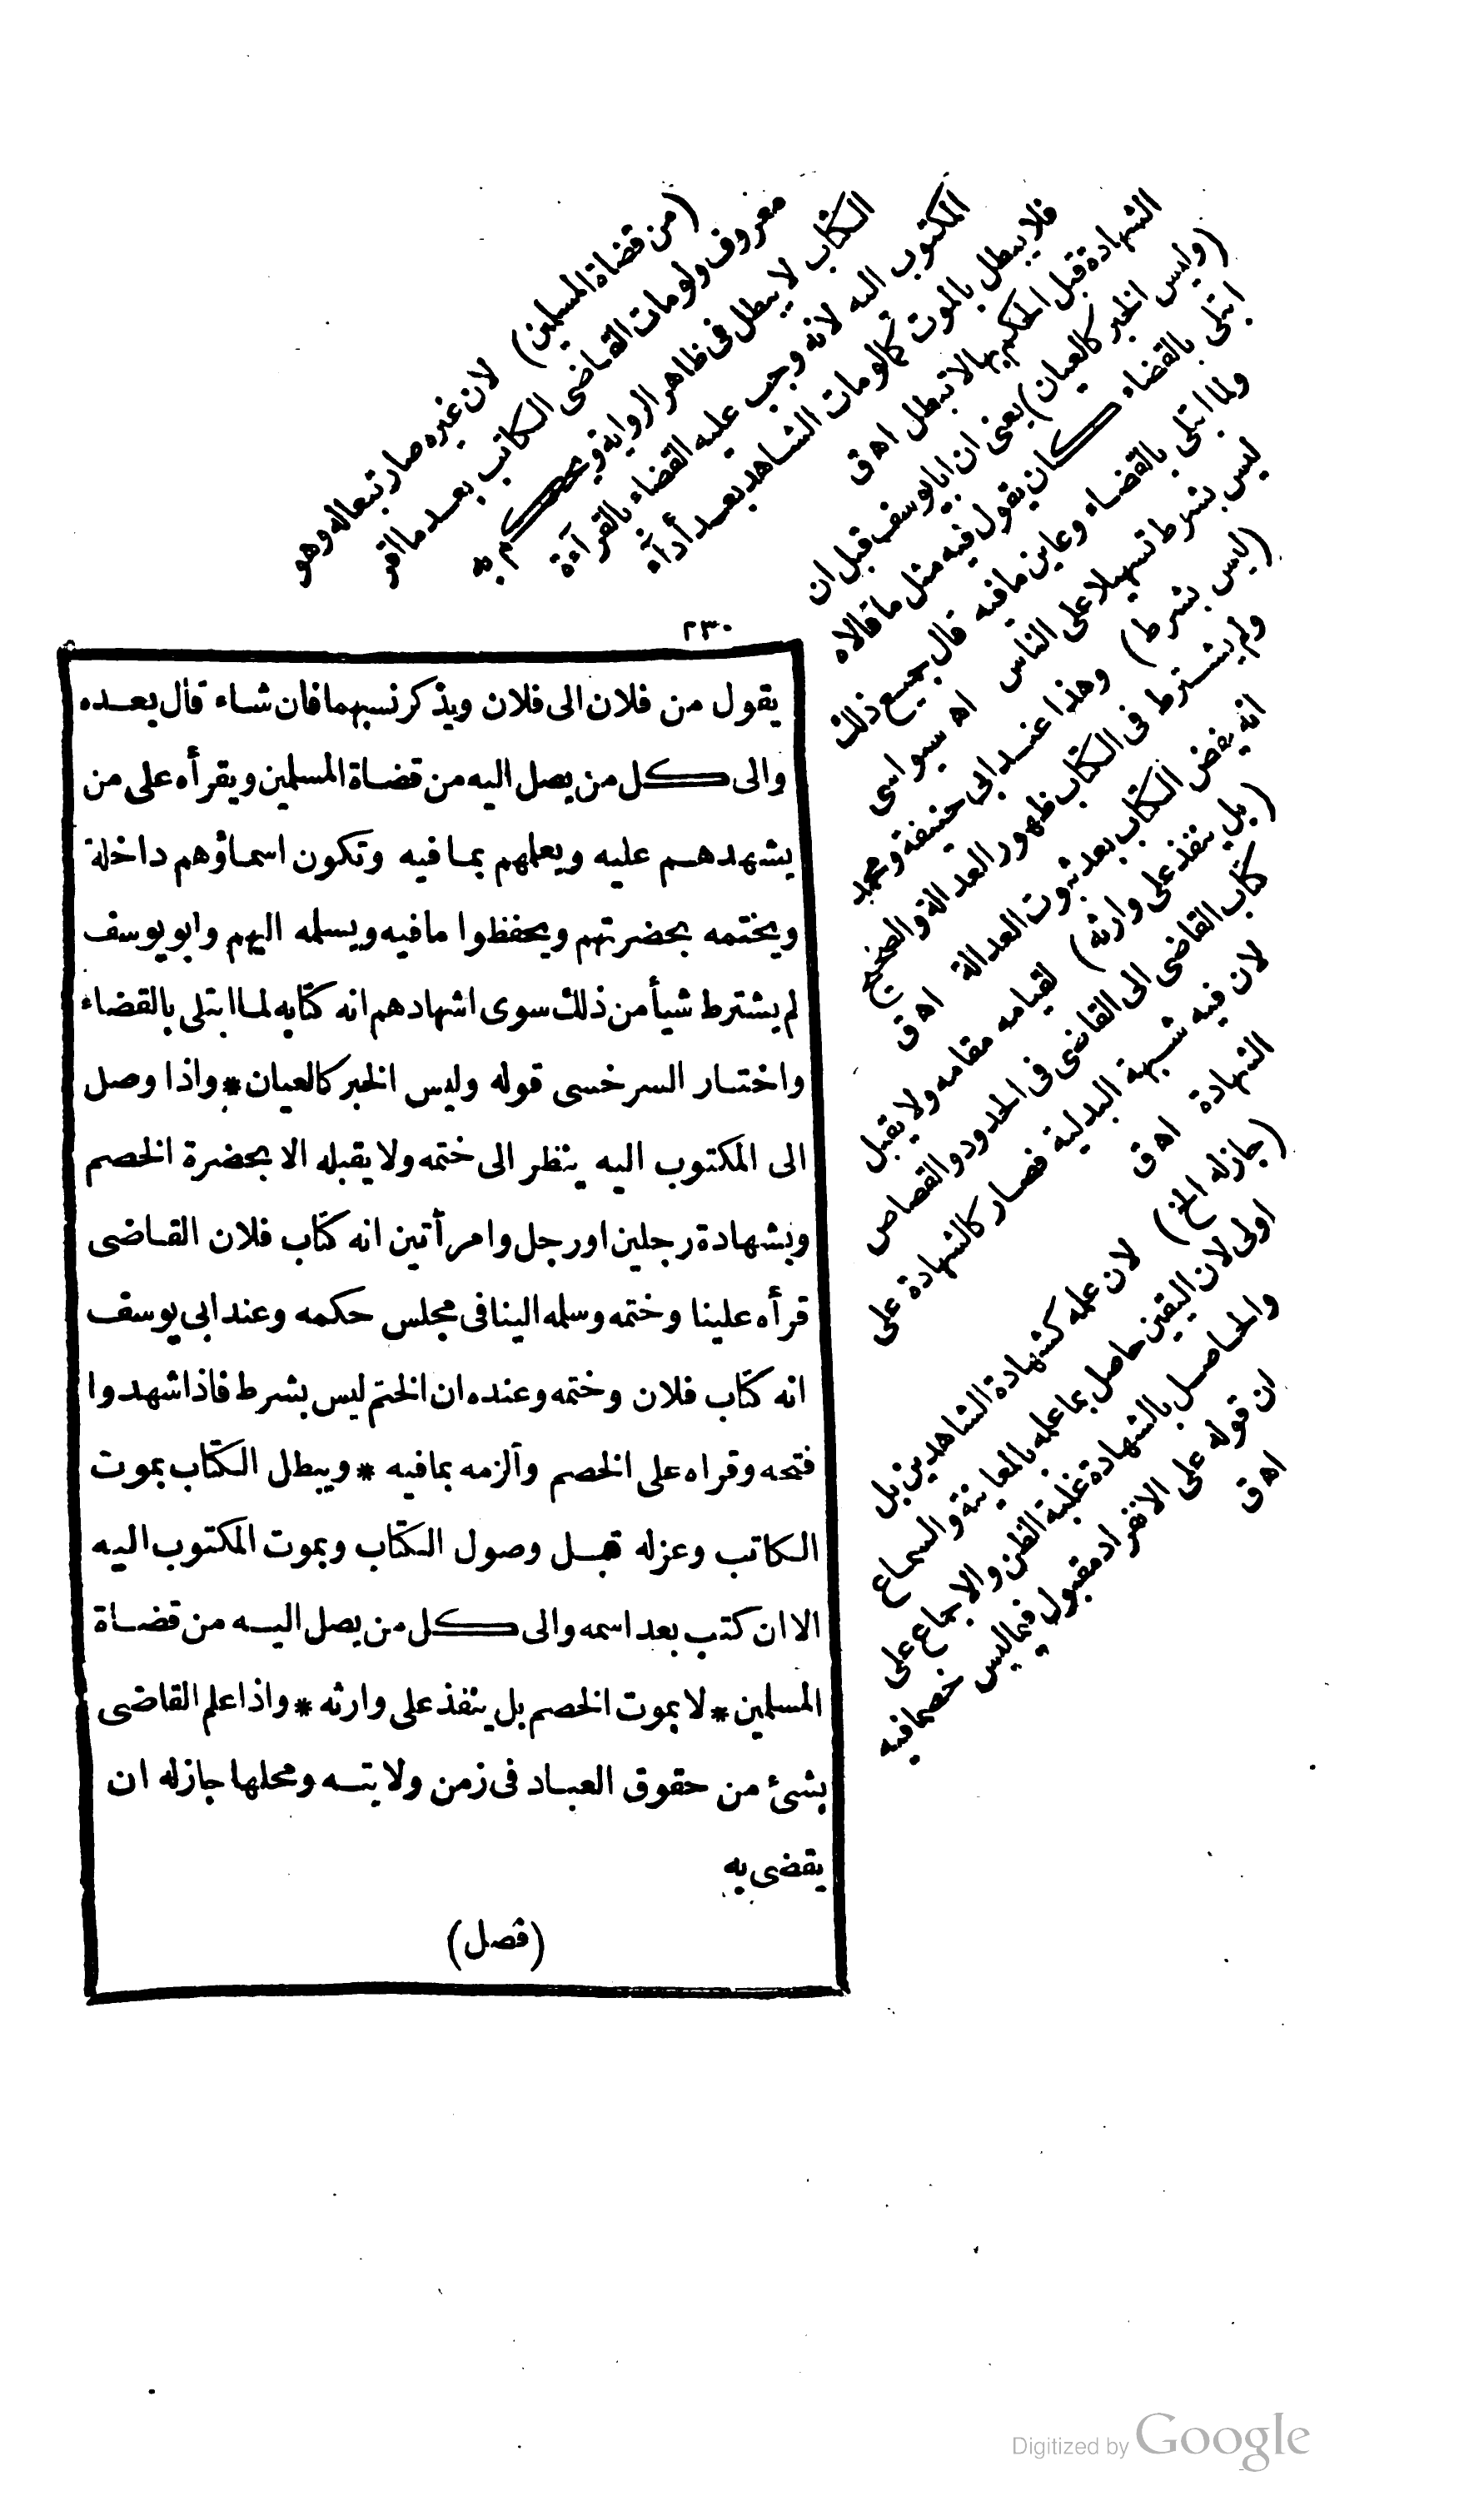 ٢٣٠
يقول من فلان الى فلان ويذكر نسبهما فان شاء قال بعده
والى كل من يصل اليه من قضاة المسلمين ويقرأه على من
يشهدهم عليه ويعلمهم بما فيه وتكون اسماؤهم داخلة
ويختمه بحضرتهم ويحفظوا ما فيه ويسلمه اليهم وابو يوسف
لم يشترط شيأ من ذلك سوى اشهادهم انه كتابه لما ابتلى بالقضاء
واختار السرخسى قوله وليس الخبر كالعيان * واذا وصل
الى المكتوب اليه ينظر الى ختمه ولا يقبله الا بحضرة الخصم
وبشهادة رجلين او رجل وامرأتين انه كتاب فلان القاضى
قرأه علينا وختمه وسلمه الينا فى مجلس حكمه وعند ابى يوسف
انه كتاب فلان وختمه وعنده ان الختم ليس بشرط فاذا شهدوا
فتحه وقراه على الخصم وألزمه بما فيه * ويبطل الكتاب بموت
الكاتب وعزله قبل وصول الكتاب وبموت المكتوب اليه
الا ان كتب بعد اسمه والى كل من يصل اليه من قضاة
المسلمين * لا بموت الخصم بل ينفذ على وارثه * واذا علم القاضى
بشئ من حقوق العباد فى زمن ولايته ومحلها جازله ان
يقضى به
(فصل)
(من قضاة المسلمين) لان غيره صار تبعا له وهو
معروف ولو مات القاضى الكاتب بعد ما اقر
الكتاب لا يبطل فى ظاهر الرواية
المكتوب اليه لانه وجب عليه القضاء بالقراءة
فلا يبطل بالموت كما لو مات الشاهد بعد أداء
الشهادة قبل الحكم بها لا تبطل اهق
(وليس الخبر كالعيان) يعنى ان ابا يوسف قبل ان
ابتلى بالقضاء كان يقول فيه مثل ما قالاه
ولما ابتلى بالقضاء وعاين ما فيه قال جميع ذلك
ليس بشرط تسهيلا على الناس اه سيواسى
(ليس بشرط) وهذا عند ابى حنيفة ومحمد
ولم يشترط فى الكتاب ظهور العدالة والصحيح
انه يفض الكتاب بعد ثبوت العدالة اهق
(بل ينفذ على وارثه) لقيامه مقامه ولا يقبل
كتاب القاضى الى القاضى فى الحدود والقصاص
لان فيه شبهة البدلية فصار كالشهادة على
الشهادة اهق
(جازله الخ) لان علمه كشهادة الشاهدين بل
اولى لان اليقين حاصل بما علمه بالمعاينة والسماع
والحاصل بالشهادة غلبة الظن والاجماع على
ان قوله على الانفراد مقبول فيما ليس خصما فيه
اهق
Digitized by Google